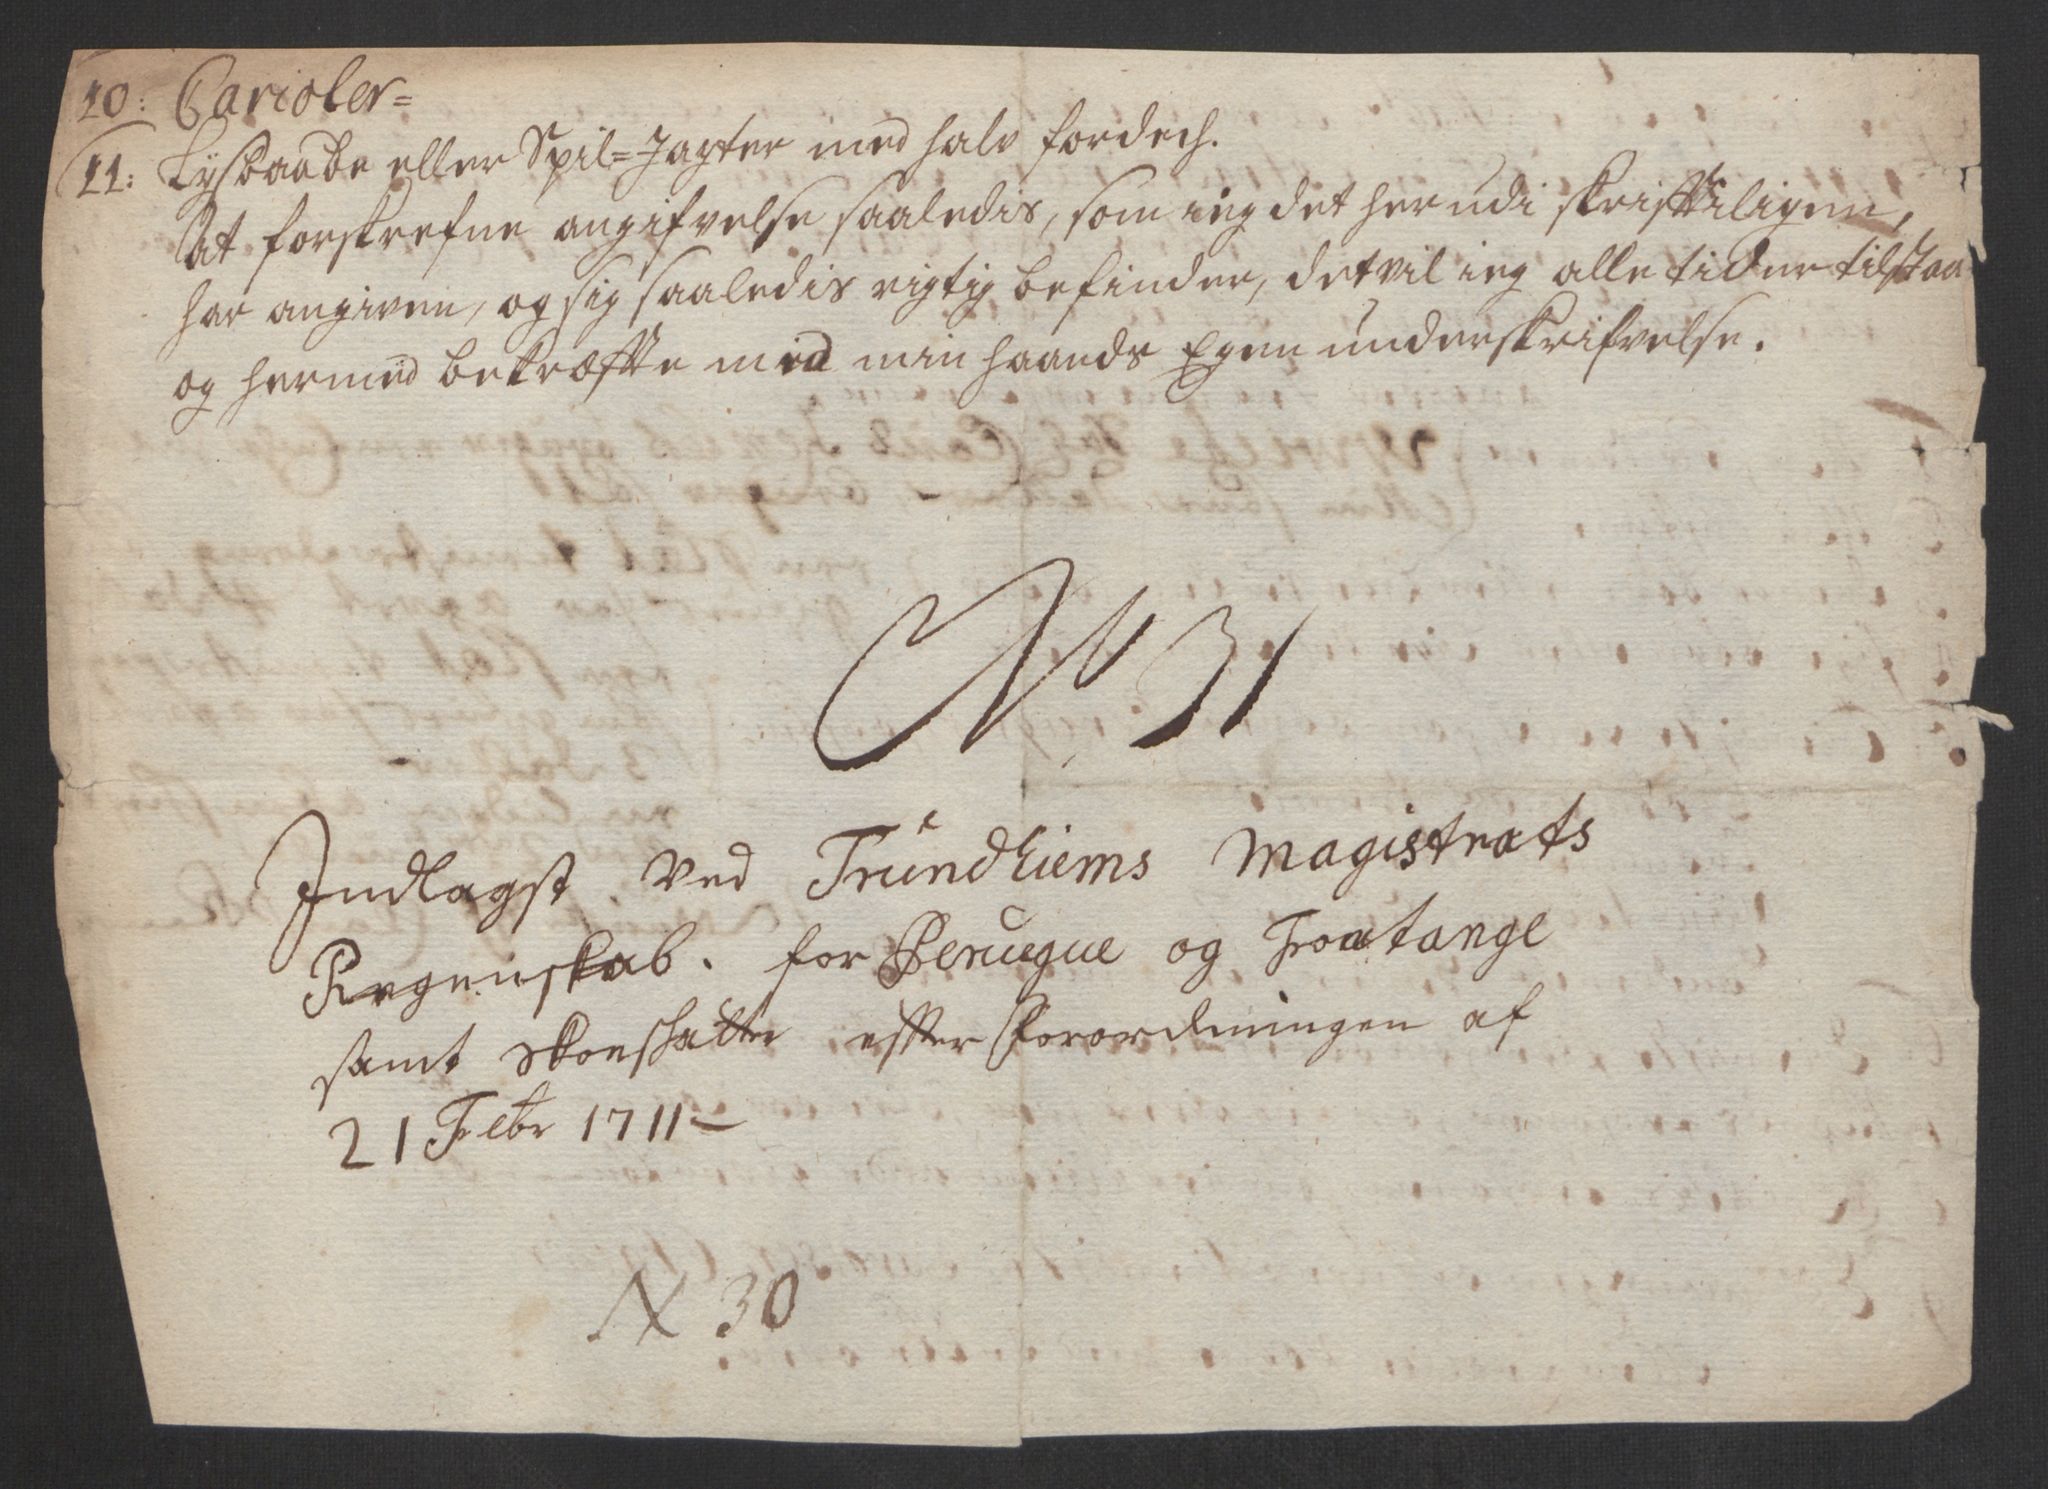 10: Carioler=
11: Lystbaade eller Spil=Jagter med halv fordech.
At forskrefne angifvelse saaledis, som ieg det herudi skrifftligen,
har angiven, og sig saaledis rigtig befinder, det vil ieg alle tider tilstaa
og hermed bekræffte med min haands Egen underskrifvelse.
No 31
Indlagst ved Trundhiems Magistrats
Regenskab. for Peruque og Frontange
samt Skoeskatter effter Forordningen af
21 Febr 1711
N 30